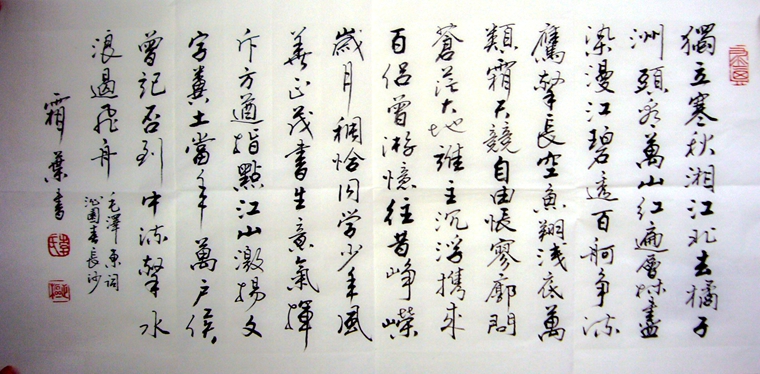 獨立寒秋湘江北去橘子
洲頭看萬山紅遍層林盡
染漫江碧透百舸争流
鷹擊長空魚翔淺底萬
類霜天競自由悵寥廓問
蒼茫大地誰主沉浮攜來
百侶曾游憶往昔崢嶸
歲月稠恰同學少年風
華正茂書生意氣揮
斥方遒指點江山激揚文
字糞土當年萬戶侯
曾記否到中流擊水
浪遏飛舟
毛澤東詞
沁園春長沙
霜葉書